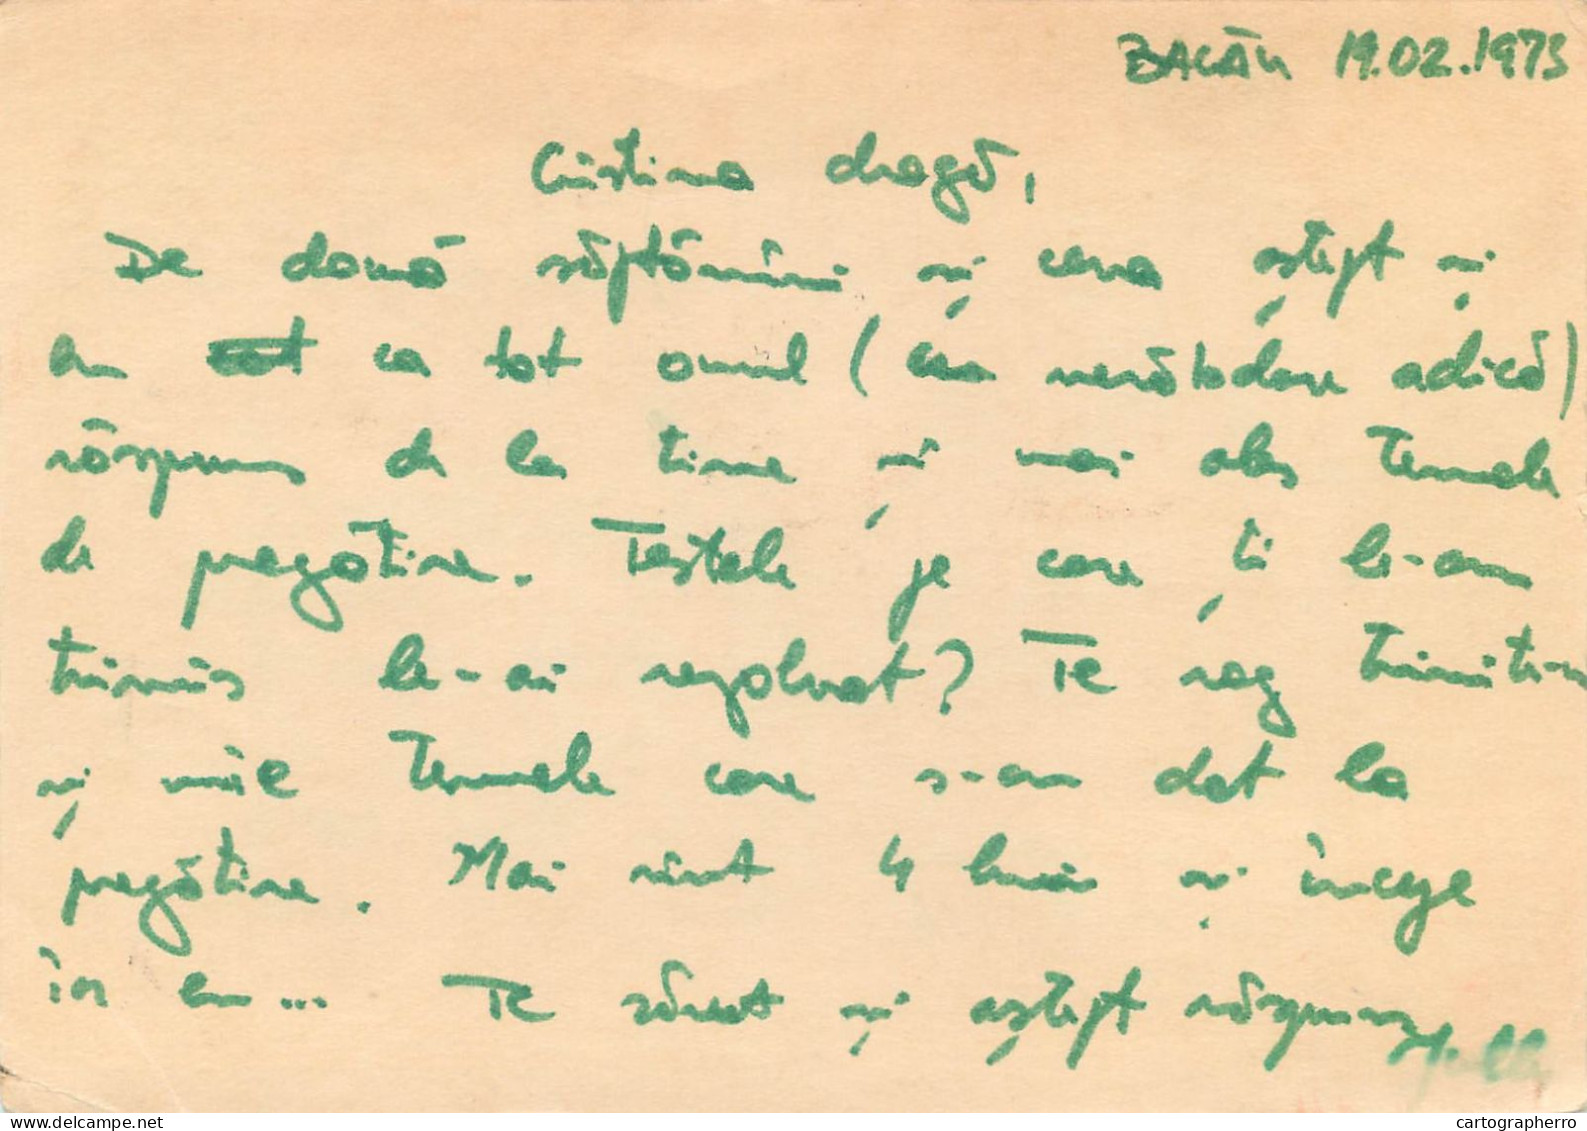 BACĂU 19.02.1973
Cristina dragă,
De două săptămîni și ceva aștept și
eu ca tot omul (cu nerăbdare adică)
răspuns de la tine și mai ales temele
de pregătire. Testele pe care ți le-am
trimis le-ai rezolvat? Te rog trimitem
și mie temele care s-au dat la
pregătire. Mai sînt 4 luni și începe
iar eu... Te sărut și aștept răspuns
cartographerro